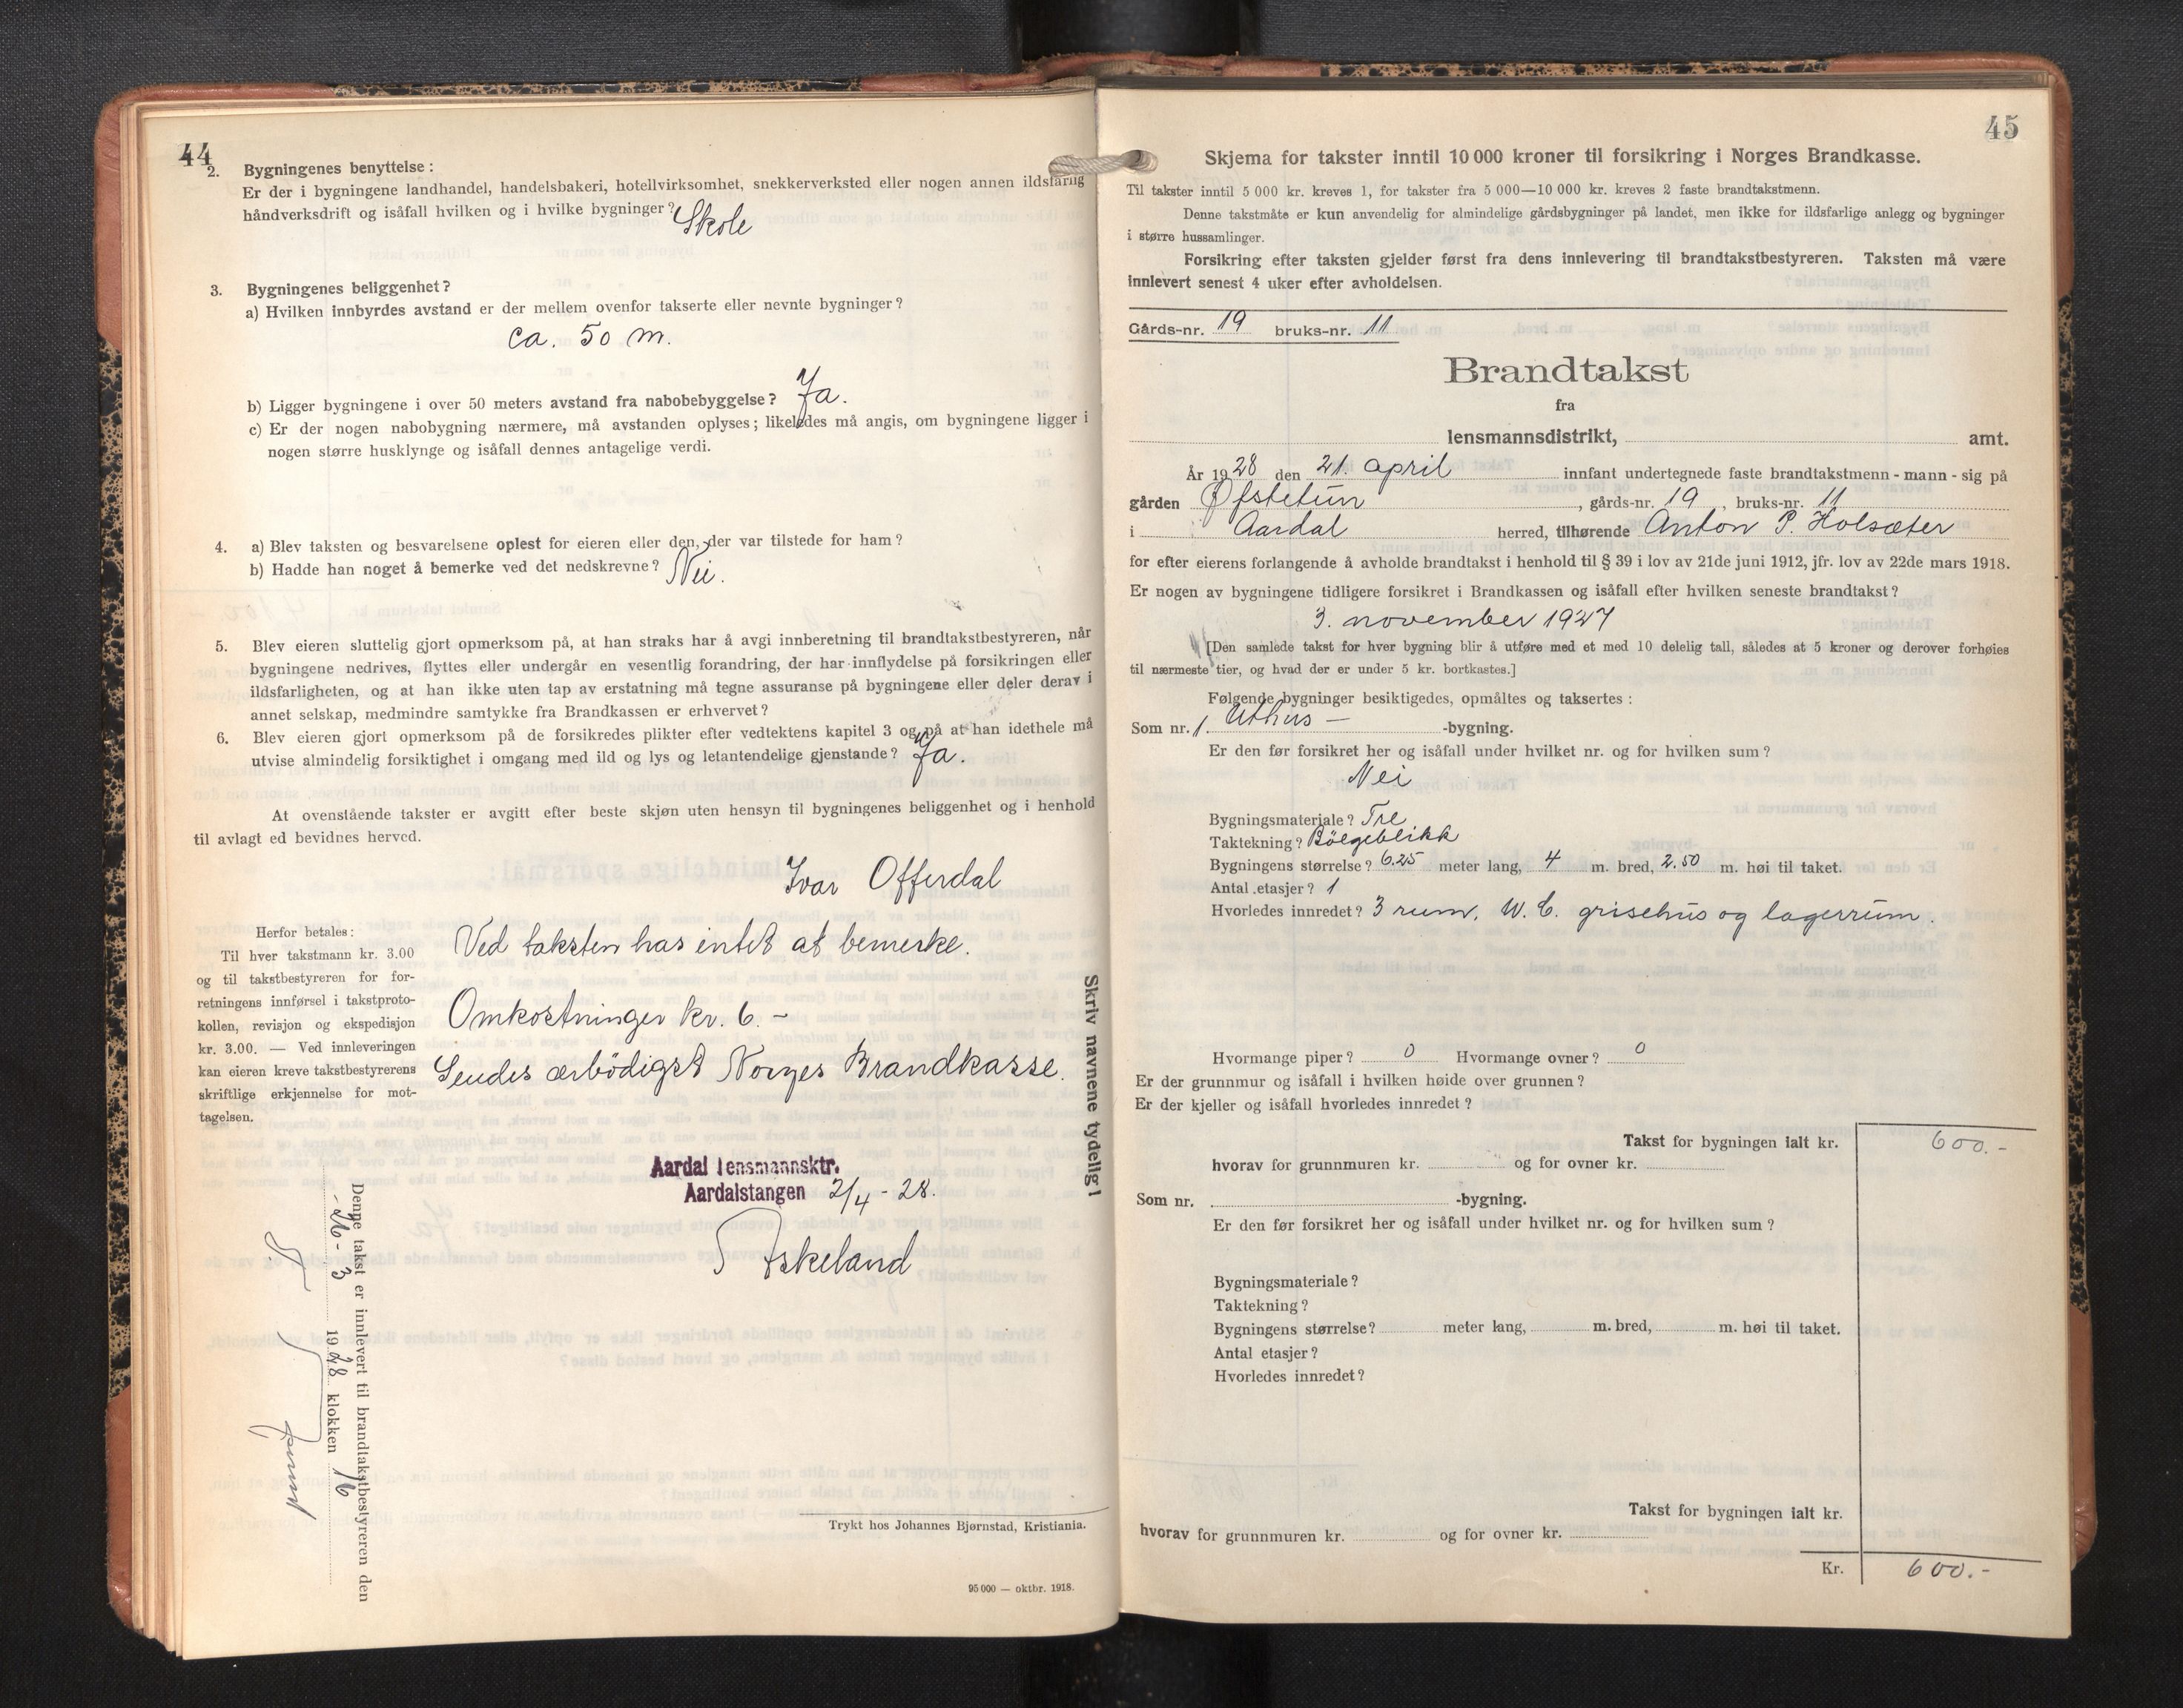 44
2. Bygningenes benyttelse:
Er der i bygningene landhandel, handelsbakeri, hotellvirksomhet, snekkerverksted eller nogen annen ildsfarlig
håndverksdrift og isåfall hvilken og i hvilke bygninger? Skole
3. Bygningenes beliggenhet?
a) Hvilken innbyrdes avstand er der mellem ovenfor takserte eller nevnte bygninger?
ca. 50 m.
b) Ligger bygningene i over 50 meters avstand fra nabobebyggelse? Ja.
c) Er der nogen nabobygning nærmere, må avstanden oplyses; likeledes må angis, om bygningene ligger i
nogen større husklynge og isåfall dennes antagelige verdi.
4. a) Blev taksten og besvarelsene oplest for eieren eller den, der var tilstede for ham?
b) Hadde han noget å bemerke ved det nedskrevne? Nei.
5. Blev eieren sluttelig gjort opmerksom på, at han straks har å avgi innberetning til brandtakstbestyreren, når
bygningene nedrives, flyttes eller undergår en vesentlig forandring, der har innflydelse på forsikringen eller
ildsfarligheten, og at han ikke uten tap av erstatning må tegne assuranse på bygningene eller deler derav i
annet selskap, medmindre samtykke fra Brandkassen er erhvervet?
6. Blev eieren gjort opmerksom på de forsikredes plikter efter vedtektens kapitel 3 og på at han idethele må
utvise almindelig forsiktighet i omgang med ild og lys og letantendelige gjenstande? Ja.
At ovenstående takster er avgitt efter beste skjøn uten hensyn til bygningenes beliggenhet og i henhold
til avlagt ed bevidnes herved.
Ivar Offerdal
Herfor betales:
Til hver takstmann kr. 3.00
og til takstbestyreren for for-
retningens innførsel i takstproto-
kollen, revisjon og ekspedisjon
kr. 3.00. — Ved innleveringen
kan eieren kreve takstbestyrerens
skriftlige erkjennelse for mot-
tagelsen.
Ved taksten has intet at bemerke.
Omkostninger kr. 6. -
Sendes ærbödigst Norges Brandkasse.
Skriv navnene tydelig!
Aardal lensmannsktr.
Aardalstangen 2/4 - 28.
Askeland
Denne takst er innlevert til brandtakstbestyreren den
- 26 - 3 1928 klokken 16
Trykt hos Johannes Bjørnstad, Kristiania.
95 000 — oktbr. 1918.
45
Skjema for takster inntil 10 000 kroner til forsikring i Norges Brandkasse.
Til takster inntil 5 000 kr. kreves 1, for takster fra 5 000—10 000 kr. kreves 2 faste brandtakstmenn.
Denne takstmåte er kun anvendelig for almindelige gårdsbygninger på landet, men ikke for ildsfarlige anlegg og bygninger
i større hussamlinger.
Forsikring efter taksten gjelder først fra dens innlevering til brandtakstbestyreren. Taksten må være
innlevert senest 4 uker efter avholdelsen.
Gårds-nr. 19 bruks-nr. 11
Brandtakst
fra
lensmannsdistrikt, amt.
År 1928 den 21. april innfant undertegnede faste brandtakstmenn - mann - sig på
gården Øfstetun, gårds-nr. 19, bruks-nr. 11
i Aardal herred, tilhørende Anton P. Holsæter
for efter eierens forlangende å avholde brandtakst i henhold til § 39 i lov av 21de juni 1912, jfr. lov av 22de mars 1918.
Er nogen av bygningene tidligere forsikret i Brandkassen og isåfall efter hvilken seneste brandtakst?
3. november 1927
[Den samlede takst for hver bygning blir å utføre med et med 10 delelig tall, således at 5 kroner og derover forhøies
til nærmeste tier, og hvad der er under 5 kr. bortkastes.]
Følgende bygninger besiktigedes, opmåltes og taksertes:
Som nr. 1. Uthus — -bygning.
Er den før forsikret her og isåfall under hvilket nr. og for hvilken sum?
Nei
Bygningsmateriale? Tre
Taktekning? Bölgeblikk
Bygningens størrelse? 6.25 meter lang, 4 m. bred, 2.50 m. høi til taket.
Antal etasjer? 1
Hvorledes innredet? 3 rum, W. C. grisehus og lagerrum.
Hvormange piper? 0 Hvormange ovner? 0
Er der grunnmur og isåfall i hvilken høide over grunnen?
Er der kjeller og isåfall hvorledes innredet?
Takst for bygningen ialt kr. 600.-
hvorav for grunnmuren kr. og for ovner kr.
Som nr. -bygning.
Er den før forsikret her og isåfall under hvilket nr. og for hvilken sum?
Bygningsmateriale?
Taktekning?
Bygningens størrelse? meter lang, m. bred, m. høi til taket.
Antal etasjer?
Hvorledes innredet?
Takst for bygningen ialt kr.
hvorav for grunnmuren kr. og for ovner kr.
Kr. 600.-